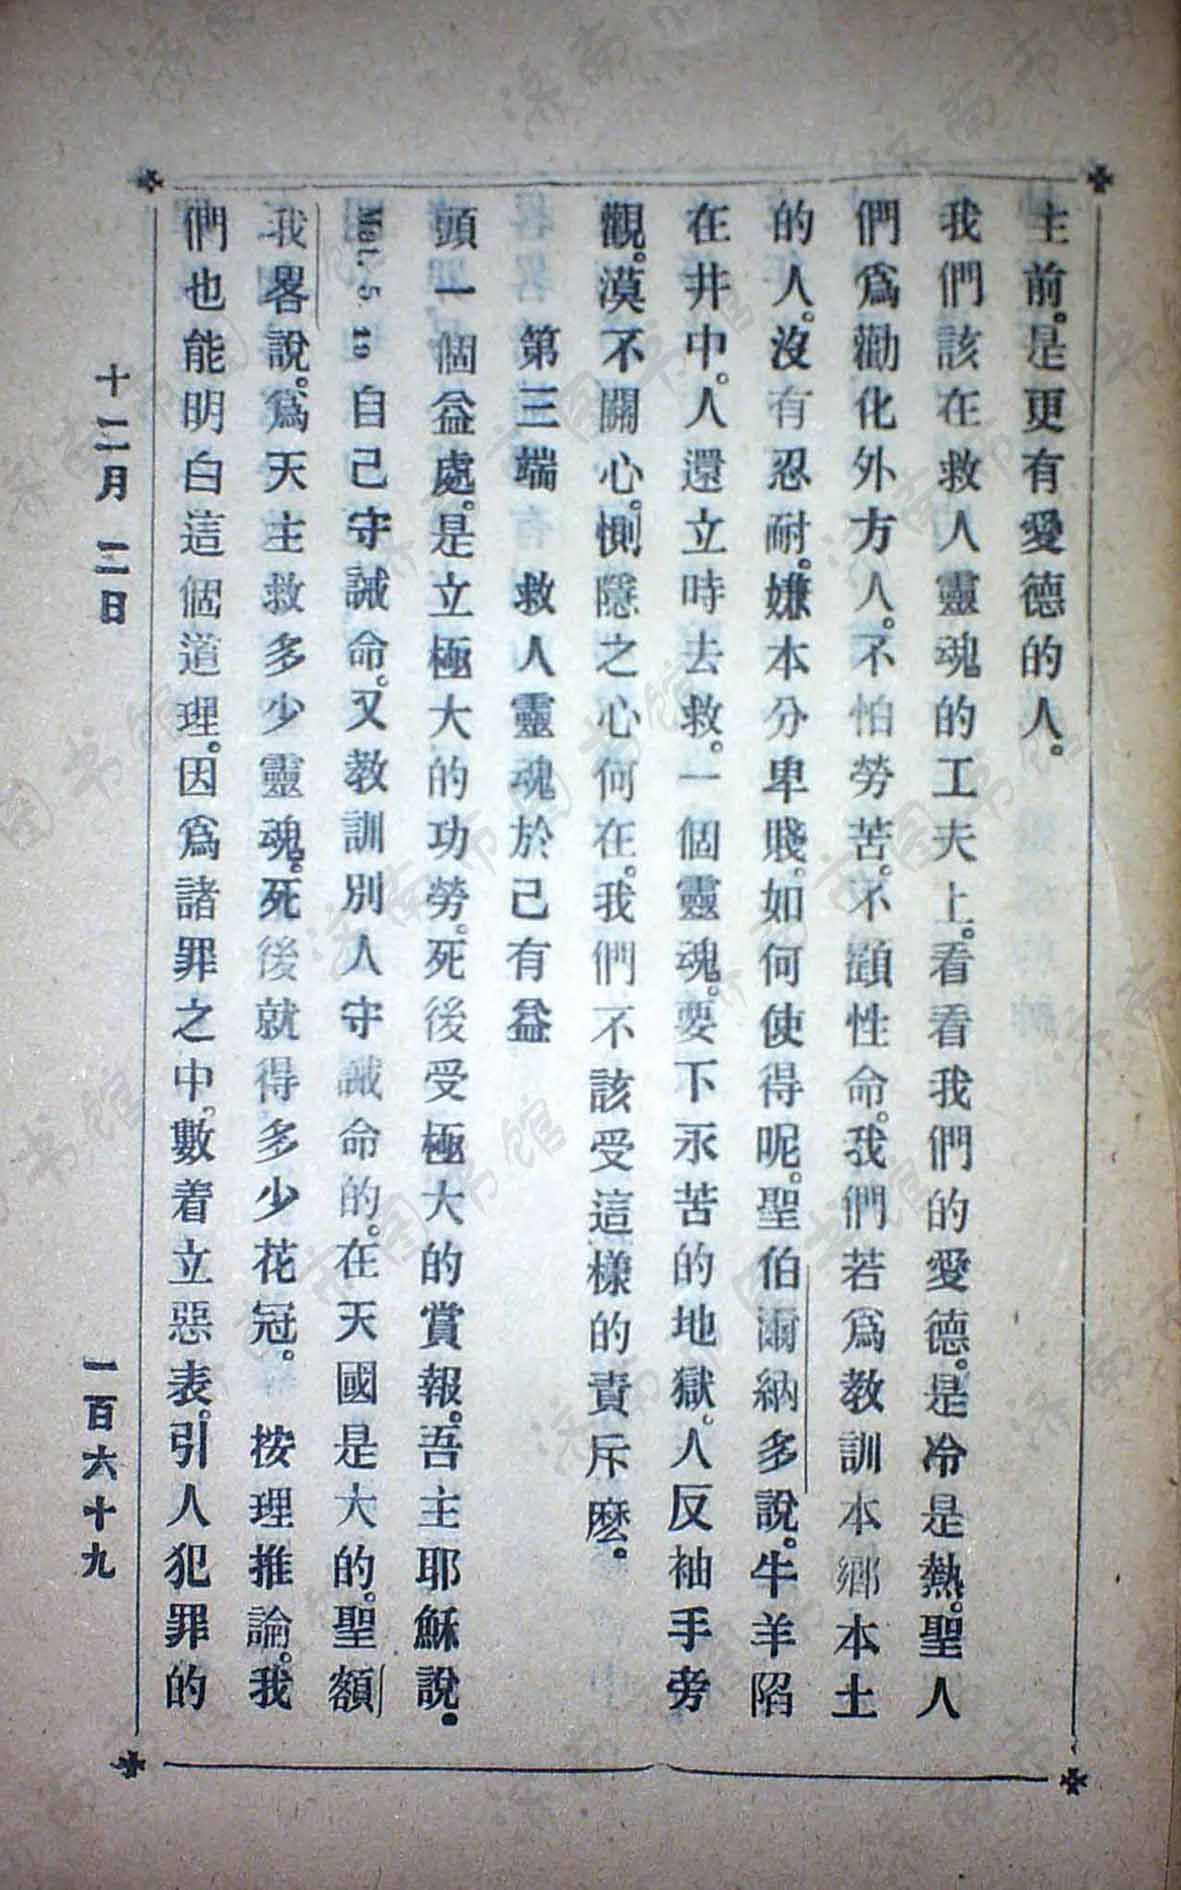 主前。是更有愛德的人。
我們該在救人靈魂的工夫上。看看我們的愛德。是冷是熱。聖人
們爲勸化外方人。不怕勞苦。不顧性命。我們若爲教訓本鄉本土
的人。沒有忍耐。嫌本分卑賤。如何使得呢。聖伯爾納多說。牛羊陷
在井中。人還立時去救。一個靈魂。要下永苦的地獄。人反袖手旁
觀。漠不關心。惻隱之心何在。我們不該受這樣的責斥麽。
第三端 救人靈魂於己有益
頭一個益處。是立極大的功勞。死後受極大的賞報。吾主耶穌說。
Mat. 5. 19 自己守誡命。又教訓別人守誡命的。在天國是大的。聖額
我畧說。爲天主救多少靈魂。死後就得多少花冠。 按理推論。我
們也能明白這個道理。因爲諸罪之中。數着立惡表。引人犯罪的
十二月 三日
一百六十九
济南市图书馆